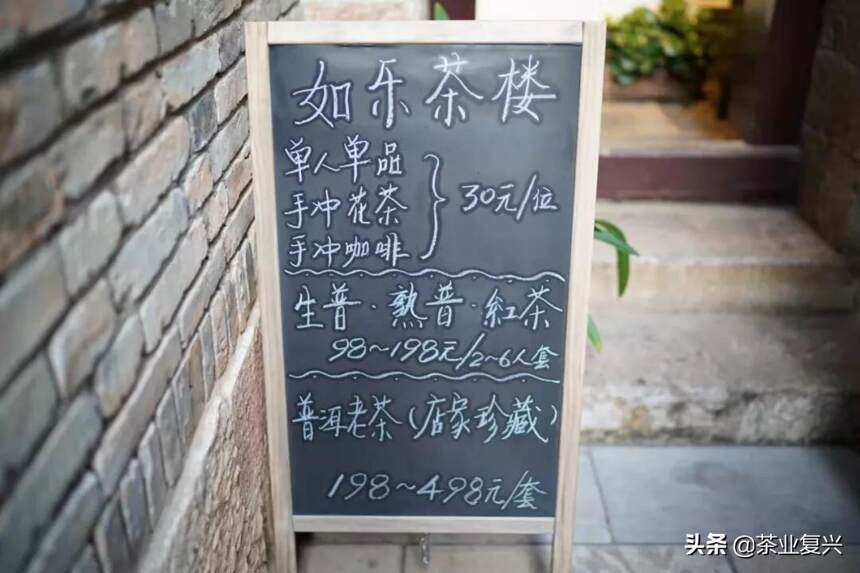 如乐茶楼
单人单品
手冲花茶
手冲咖啡
30元/位
生普·熟普·紅茶
98~198元/2~6人套
普洱老茶(店家珍藏)
198~498元/套
头条 @茶业复兴